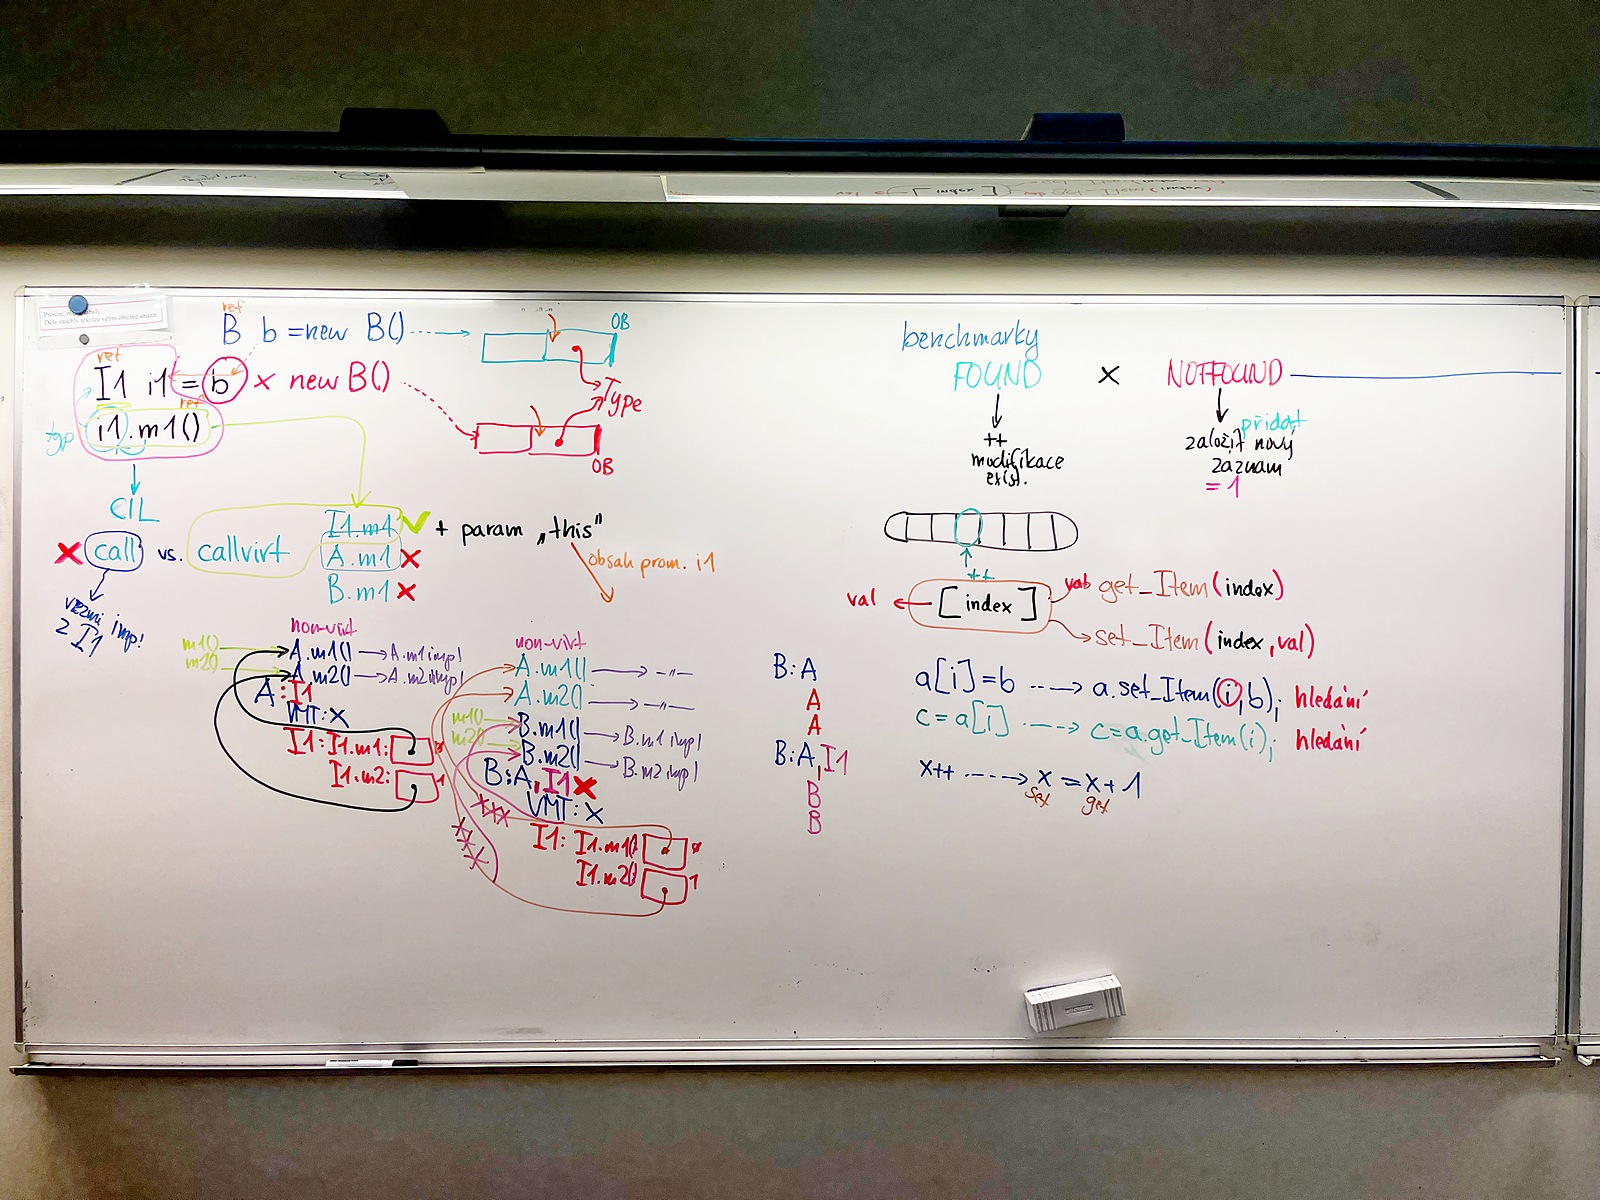 ref
B b = new B()
OB
ref
I1 i1 = b × new B()
Type
ref
typ
i1.m1()
OB
CIL
call vs. callvirt
I1.m1
A.m1
B.m1
+ param „this"
obsah prom. i1
vezmi imp!
z I1
non-virt
m1()
A.m1() → A.m1 impl
m2()
A.m2() → A.m2 impl
A : I1
VMT: X
I1: I1.m1:
I1.m2:
1
non-virt
A.m1() → -"-
A.m2() → -"-
m1()
B.m1() → B.m1 impl
m2()
B.m2() → B.m2 impl
B:A, I1
VMT: X
I1: I1.m1()
I1.m2()
1
B:A
A
A
B:A, I1
B
B
benchmarky
FOUND × NOTFOUND
++
modifikace
exist.
přidat
založit nový
zaznam
= 1
++
val ← [ index ]
get_Item(index)
set_Item(index, val)
a[i] = b ----> a.set_Item(i, b); hledání
c = a[i] ----> c = a.get_Item(i); hledání
x++ ----> x = x + 1
set get